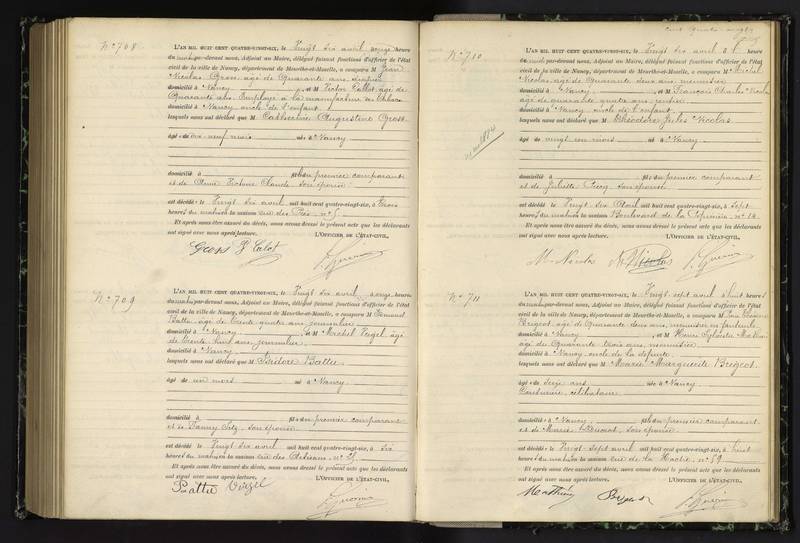 N° 708
L'AN MIL HUIT CENT QUATRE-VINGT-SIX, le Vingt Six avril, onze heures
du matin par-devant nous, Adjoint au Maire, délégué faisant fonctions d'officier de l'état
civil de la ville de Nancy, département de Meurthe-et-Moselle, a comparu M Jean
Nicolas Gross âgé de Quarante ans
domicilié à Nancy, et M Victor âgé de
Quarante ans, Employé à la manufacture des tabacs
domicilié à Nancy oncle de l'enfant
lesquels nous ont déclaré que M Catherine Augustine Gross
âgé de dix neuf mois né à Nancy
domicilié à fils du premier comparant
et de Anne Claude son épouse
est décédé le Vingt Six avril mil huit cent quatre-vingt-six, à trois
heures du matin en sa maison rue des Prés n° 5
Et après nous être assuré du décès, nous avons dressé le présent acte que les déclarants
ont signé avec nous après lecture. L'OFFICIER DE L'ÉTAT-CIVIL,
Gross
N° 709
L'AN MIL HUIT CENT QUATRE-VINGT-SIX, le Vingt Six avril, onze heures
du matin par-devant nous, Adjoint au Maire, délégué faisant fonctions d'officier de l'état
civil de la ville de Nancy, département de Meurthe-et-Moselle, a comparu M
Battu âgé de Trente quatre ans journalier
domicilié à Nancy, et M Michel âgé
de Trente huit ans journalier
domicilié à Nancy
lesquels nous ont déclaré que M Isidore Battu
âgé de un mois né à Nancy
domicilié à fils du premier comparant
et de Fanny son épouse
est décédé le Vingt Six avril mil huit cent quatre-vingt-six, à six
heures du matin en sa maison rue des Artisans n°
Et après nous être assuré du décès, nous avons dressé le présent acte que les déclarants
ont signé avec nous après lecture. L'OFFICIER DE L'ÉTAT-CIVIL,
Battu
N° 710
L'AN MIL HUIT CENT QUATRE-VINGT-SIX, le Vingt Six avril, à heures
du par-devant nous, Adjoint au Maire, délégué faisant fonctions d'officier de l'état
civil de la ville de Nancy, département de Meurthe-et-Moselle, a comparu M Michel
Nicolas âgé de Quarante deux ans menuisier
domicilié à Nancy, et M François Charles Nicolas
âgé de quarante quatre ans
domicilié à Nancy oncle de l'enfant
lesquels nous ont déclaré que M Théodore Jules Nicolas
âgé de vingt un mois né à Nancy
domicilié à fils du premier comparant
et de Juliette son épouse
est décédé le Vingt Six avril mil huit cent quatre-vingt-six, à sept
heures du matin en sa maison Boulevard de la Pépinière, n° 14
Et après nous être assuré du décès, nous avons dressé le présent acte que les déclarants
ont signé avec nous après lecture. L'OFFICIER DE L'ÉTAT-CIVIL,
N° 711
L'AN MIL HUIT CENT QUATRE-VINGT-SIX, le Vingt sept avril à huit heures
du matin par-devant nous, Adjoint au Maire, délégué faisant fonctions d'officier de l'état
civil de la ville de Nancy, département de Meurthe-et-Moselle, a comparu M
Brégeot âgé de Quarante deux ans, menuisier en fauteuils
domicilié à Nancy, et M Henri
âgé de Quarante trois ans, menuisier
domicilié à Nancy oncle de la défunte
lesquels nous ont déclaré que M Marie Marguerite Brégeot
âgé de seize ans née à Nancy
Couturière, célibataire
domicilié à Nancy fille du premier comparant
et de Marie son épouse
est décédé le Vingt-Sept avril mil huit cent quatre-vingt-six, à huit
heures du matin en sa maison rue de la Hache n° 59
Et après nous être assuré du décès, nous avons dressé le présent acte que les déclarants
ont signé avec nous après lecture. L'OFFICIER DE L'ÉTAT-CIVIL,